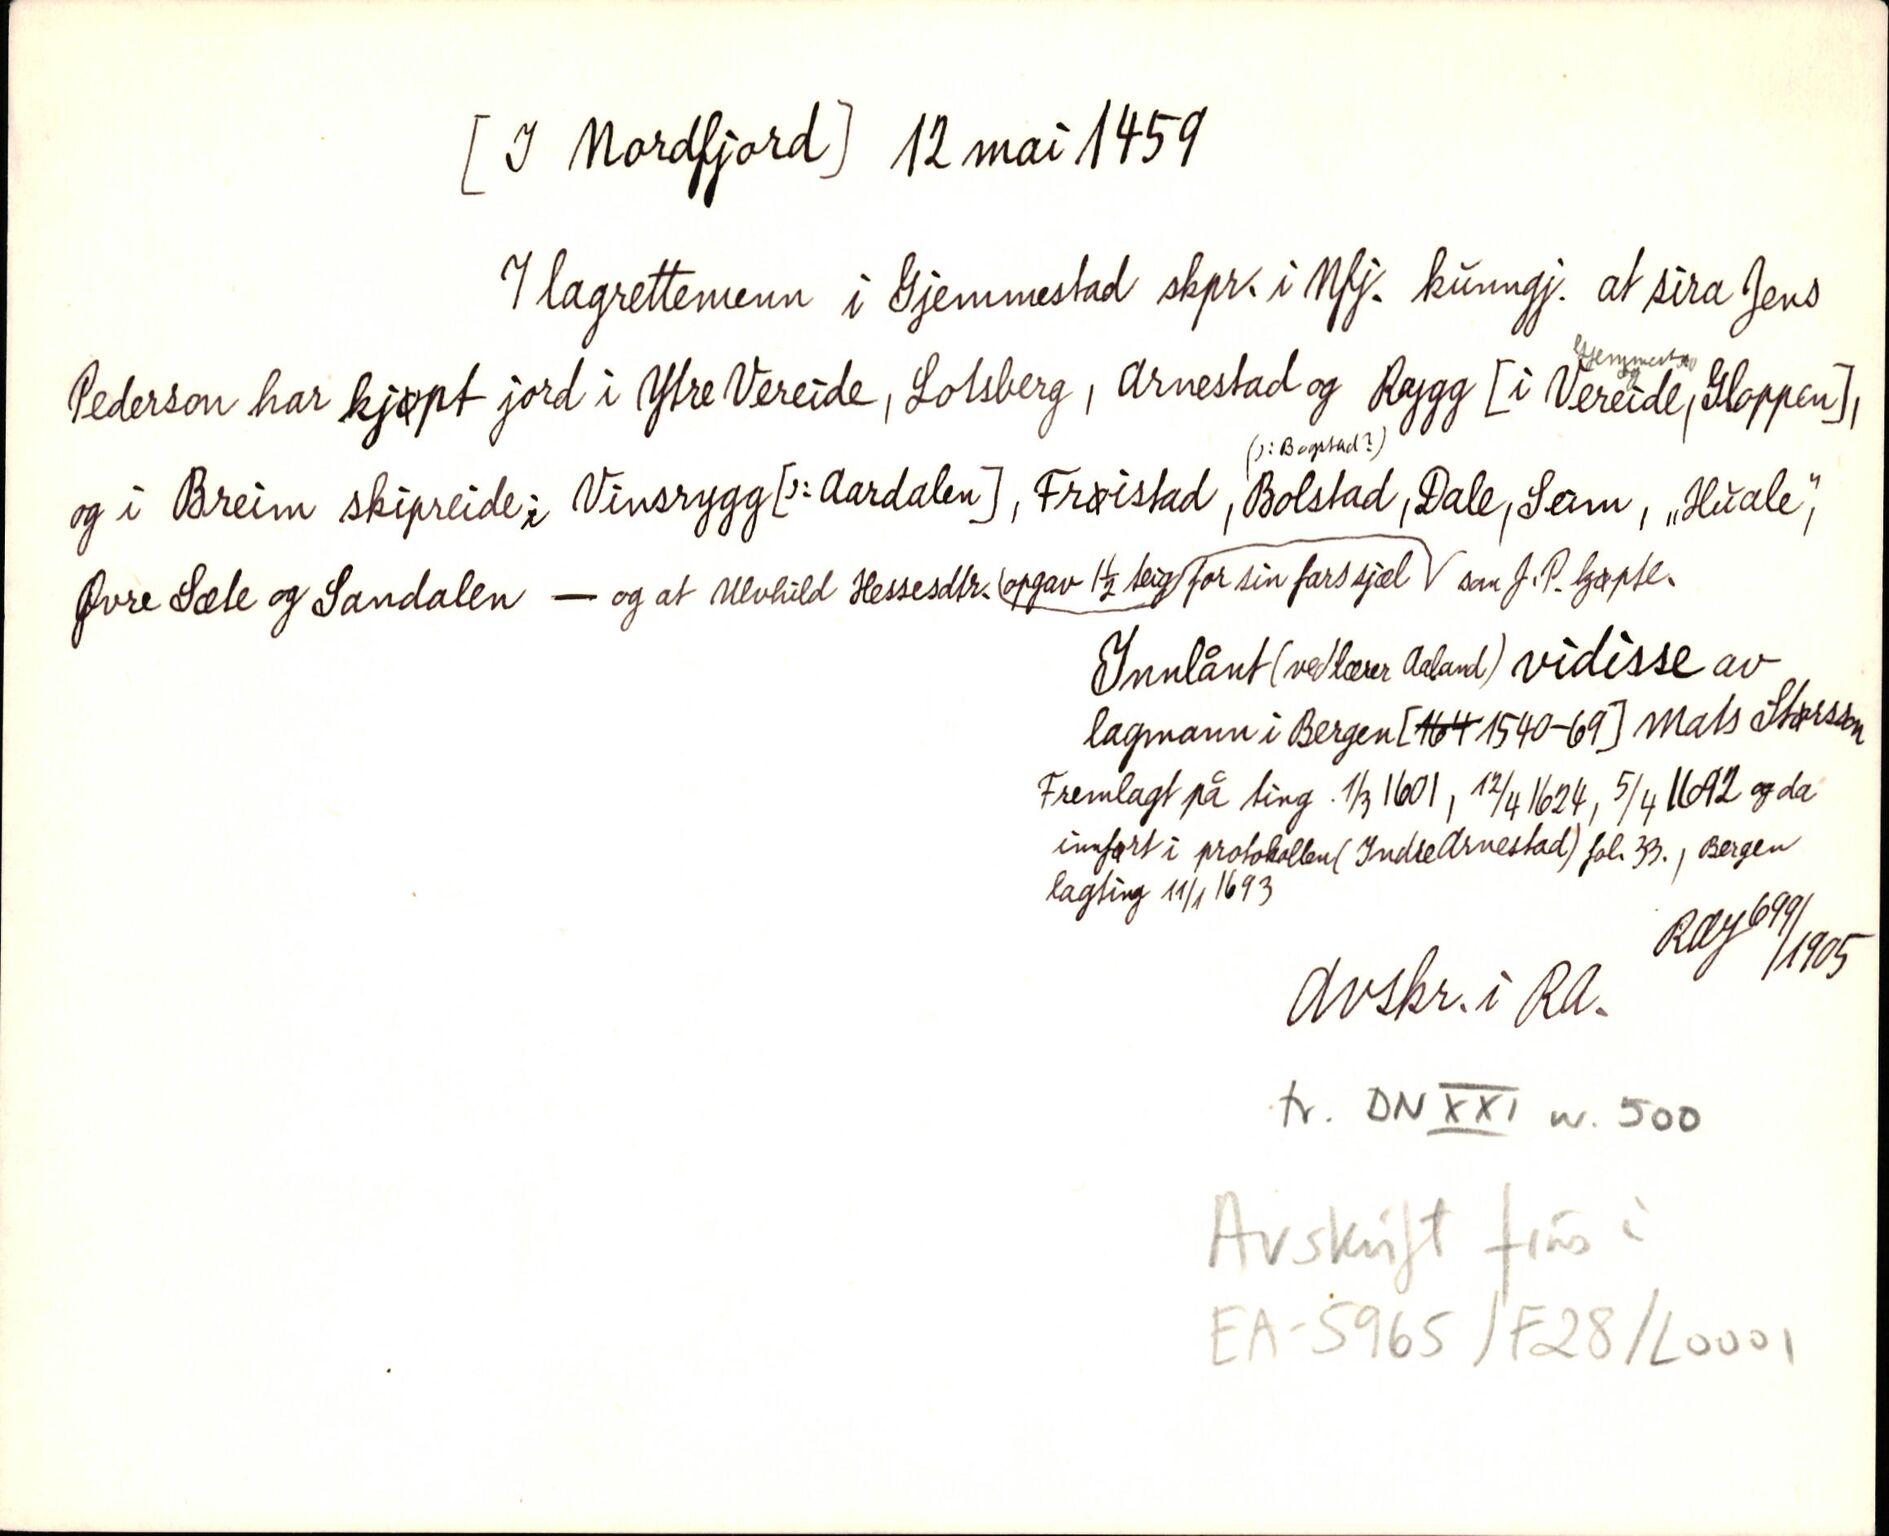 [I Nordfjord] 12 mai 1459
7 lagrettemenn i Gjemmestad skpr. i Nfj. kunngj. at sira Jens
Gjemmestad og
Pederson har kjøpt jord i Ytre Vereide, Lotsberg, Arnestad og Rygg [i Vereide, Gloppen],
(ɔ: Bogstad?)
og i Breim skipreide i Vinsrygg [ɔ: Aardalen], Frøistad, Bolstad, Dale, Seim, „Huale",
Øvre Sæle og Sandalen — og at Ulvhild Hessesdtr. opgav 1½ teig for sin fars sjæl som J. P. kjøpte.
Innlånt (ved lærer Aaland) vidisse av
lagmann i Bergen [164 1540-69] Mats Størsson
Fremlagt på ting 1/3 1601, 12/4 1624, 5/4 1692 og da
innført i protokollen (Indre Arnestad) fol. 33., Bergen
lagting 11/1 1693
RAy 699/1905
Avskr. i RA.
tr. DN XXI nr. 500
Avskrift fins i
EA-5965/F28/L0001